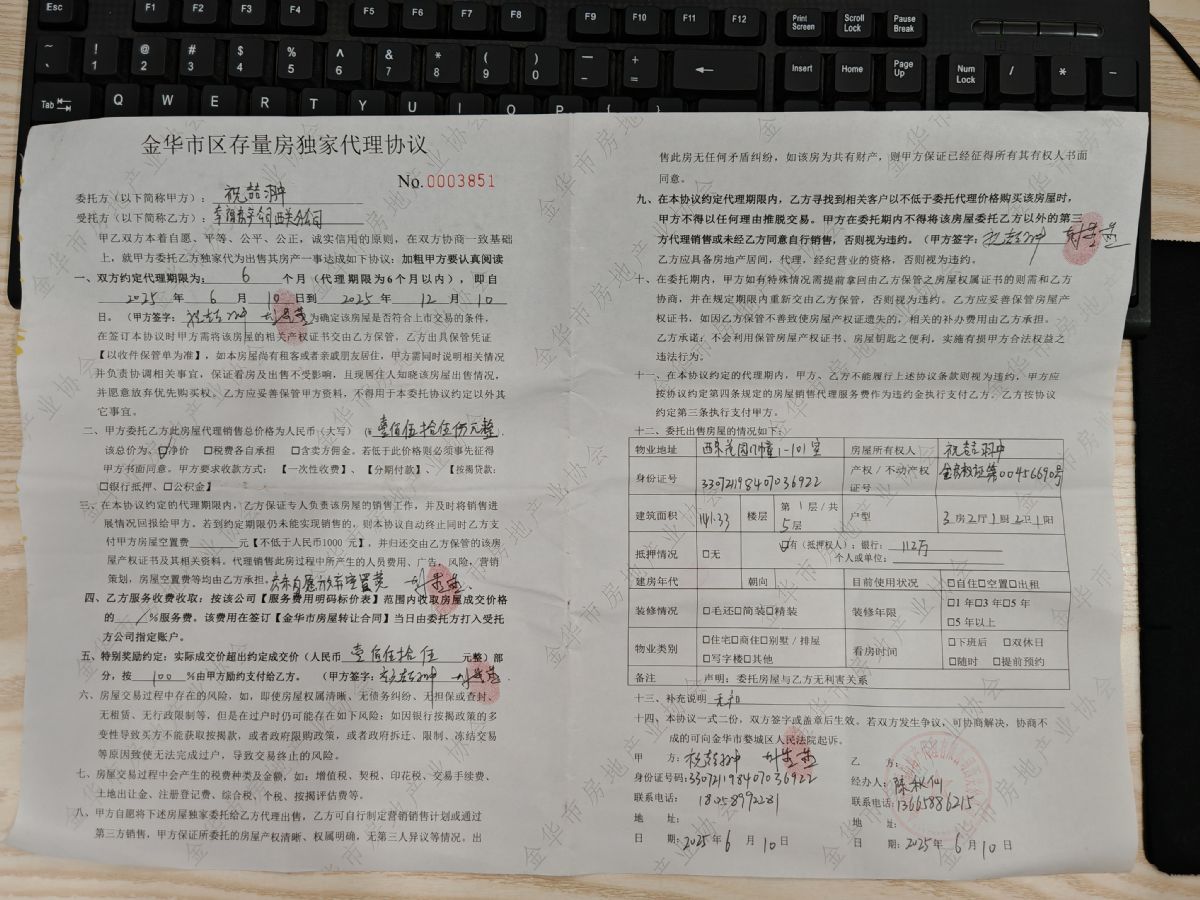 Esc F1 F2 F3 F4 F5 F6 F7 F8 F9 F10 F11 F12 Print Screen Scroll Lock Pause Break
~ ` ! 1 @ 2 # 3 $ 4 % 5 ^ 6 & 7 * 8 ( 9 ) 0 — - + = Insert Home Page Up Num Lock / * -
Tab Q W E R T Y U I O P { }
金华市区存量房独家代理协议
No.0003851
委托方（以下简称甲方）：祝喆翀
受托方（以下简称乙方）：
甲乙双方本着自愿、平等、公平、公正，诚实信用的原则，在双方协商一致基础
上，就甲方委托乙方独家代为出售其房产一事达成如下协议：加粗甲方要认真阅读
一、双方约定代理期限为： 6 个月（代理期限为6个月以内），即自
2025 年 6 月 10 日到 2025 年 12 月 10
日。（甲方签字： 为确定该房屋是否符合上市交易的条件，
在签订本协议时甲方需将该房屋的相关产权证书交由乙方保管，乙方出具保管凭证
【以收件保管单为准】，如本房屋尚有租客或者亲戚朋友居住，甲方需同时说明相关情况
并负责协调相关事宜，保证看房及出售不受影响，且现居住人知晓该房屋出售情况，
并愿意放弃优先购买权。乙方应妥善保管甲方资料，不得用于本委托协议约定以外其
它事宜。
二、甲方委托乙方此房屋代理销售总价格为人民币（大写）（¥ 壹佰伍拾伍万元整
该总价为、☑净价 □税费各自承担 □含卖方佣金。若低于此价格则必须事先征得
甲方书面同意。甲方要求收款方式：【一次性收费】、【分期付款】、【按揭贷款：
□银行抵押、□公积金】
三、在本协议约定的代理期限内，乙方保证专人负责该房屋的销售工作，并及时将销售进
展情况回报给甲方。若到约定期限仍未能实现销售的，则本协议自动终止同时乙方支
付甲方房屋空置费 元【不低于人民币1000 元】，并归还交由乙方保管的该房
屋产权证书及其相关资料。代理销售此房过程中所产生的人员费用、广告，风险，营销
策划，房屋空置费等均由乙方承担，
四、乙方服务收费收取：按该公司【服务费用明码标价表】范围内收取房屋成交价格
的 / %服务费。该费用在签订【金华市房屋转让合同】当日由委托方打入受托
方公司指定账户。
五、特别奖励约定：实际成交价超出约定成交价（人民币 壹佰伍拾伍 元整）部
分，按 100 %由甲方励约支付给乙方。（甲方签字：
六、房屋交易过程中存在的风险，如，即使房屋权属清晰、无债务纠纷、无担保或查封、
无租赁、无行政限制等，但是在过户时仍可能存在如下风险：如因银行按揭政策的多
变性导致买方不能获取按揭款，或者政府限购政策，或者政府拆迁、限制、冻结交易
等原因致使无法完成过户，导致交易终止的风险。
七、房屋交易过程中会产生的税费种类及金额，如：增值税、契税、印花税、交易手续费、
土地出让金、注册登记费、综合税、个税、按揭评估费等。
八、甲方自愿将下述房屋独家委托给乙方代理出售，乙方可自行制定营销销售计划或通过
第三方销售，甲方保证所委托的房屋产权清晰、权属明确，无第三人异议等情况。出
售此房无任何矛盾纠纷，如该房为共有财产，则甲方保证已经征得所有其有权人书面
同意。
九、在本协议约定代理期限内，乙方寻找到相关客户以不低于委托代理价格购买该房屋时，
甲方不得以任何理由推脱交易。甲方在委托期内不得将该房屋委托乙方以外的第三
方代理销售或未经乙方同意自行销售，否则视为违约。（甲方签字：
乙方应具备房地产居间，代理，经纪营业的资格，否则视为违约。
十、在委托期内，甲方如有特殊情况需提前拿回由乙方保管之房屋权属证书的则需和乙方
协商，并在规定期限内重新交由乙方保管，否则视为违约。乙方应妥善保管房屋产
权证书，如因乙方保管不善致使房屋产权证遗失的，相关的补办费用由乙方承担。
乙方承诺：不会利用保管房屋产权证书、房屋钥匙之便利，实施有损甲方合法权益之
违法行为。
十一、在本协议约定的代理期内，甲方、乙方不能履行上述协议条款则视为违约，甲方应
按协议约定第四条规定的房屋销售代理服务费作为违约金执行支付乙方。乙方按协议
约定第三条执行支付甲方。
十二、委托出售房屋的情况如下：
物业地址 1-101室 房屋所有权人 祝喆翀
身份证号 330721198407036922 产权/不动产权证号 00456690号
建筑面积 141.33 楼层 第 1 层/共 5 层 户型 3房2厅1厨2卫1阳
抵押情况 □无 ☑有（抵押权人）：银行： 112万
个人或单位：
建房年代 朝向 目前使用状况 □自住□空置□出租
装修情况 □毛还□简装□精装 装修年限 □1年□3年□5年
□5年以上
物业类别 □住宅□商住□别墅/排屋 □写字楼□其他 看房时间 □下班后 □双休日
□随时 □提前预约
备注 声明：委托房屋与乙方无利害关系
十三、补充说明
十四、本协议一式二份，双方签字或盖章后生效。若双方发生争议，可协商解决，协商不
成的可向金华市婺城区人民法院起诉。
甲 方：祝喆翀
身份证号码：330721198407036922
联系电话： 18258992281
地 址：
日 期：2025年 6 月 10 日
乙 方：
经办人：陈秋仙
联系电话：13665886215
地 址：
日 期：2025年 6 月 10 日